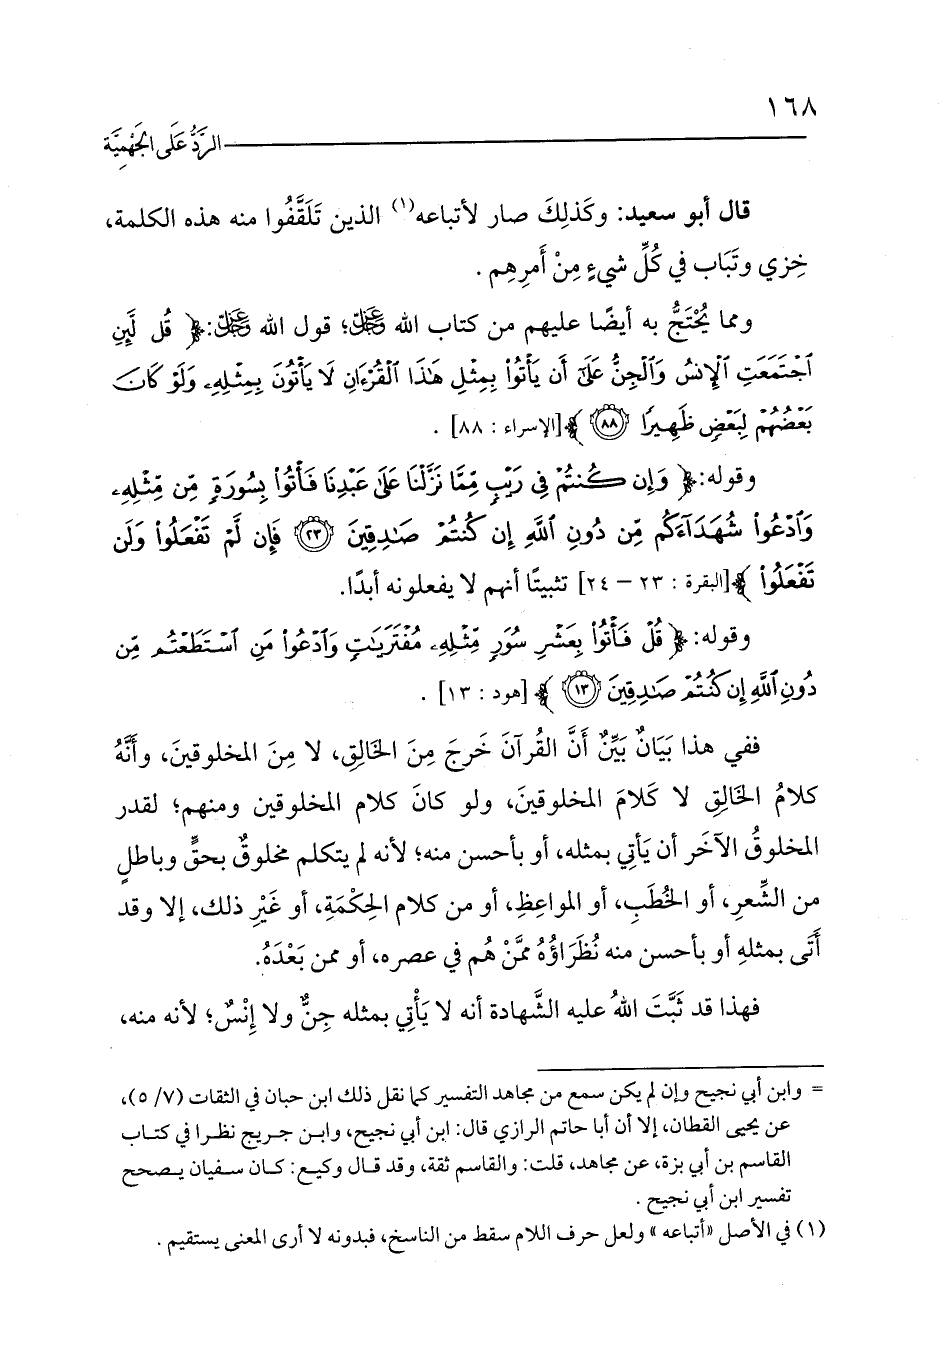 ١٦٨
الرَّدُّ عَلَى الجَهْمِيَّةِ
قال أبو سعيد: وكَذلِكَ صار لأتباعه(١) الذين تَلَقَّفُوا منه هذه الكلمة،
خِزي وتَبَاب في كُلِّ شيءٍ مِنْ أَمرِهِم .
ومما يُحْتَجُّ به أيضًا عليهم من كتاب الله ﷻ؛ قول الله ﷻ: ﴿ قُل لَّئِنِ
ٱجْتَمَعَتِ ٱلْإِنسُ وَٱلْجِنُّ عَلَىٰٓ أَن يَأْتُوا۟ بِمِثْلِ هَٰذَا ٱلْقُرْءَانِ لَا يَأْتُونَ بِمِثْلِهِۦ وَلَوْ كَانَ
بَعْضُهُمْ لِبَعْضٍ ظَهِيرًا ٨٨ ﴾ [الإسراء : ٨٨] .
وقوله: ﴿ وَإِن كُنتُمْ فِى رَيْبٍ مِّمَّا نَزَّلْنَا عَلَىٰ عَبْدِنَا فَأْتُوا۟ بِسُورَةٍ مِّن مِّثْلِهِۦ
وَٱدْعُوا۟ شُهَدَآءَكُم مِّن دُونِ ٱللَّهِ إِن كُنتُمْ صَٰدِقِينَ ٢٣ فَإِن لَّمْ تَفْعَلُوا۟ وَلَن
تَفْعَلُوا۟ ﴾ [البقرة : ٢٣ – ٢٤] تثبيتًا أنهم لا يفعلونه أبدًا.
وقوله: ﴿ قُلْ فَأْتُوا۟ بِعَشْرِ سُوَرٍ مِّثْلِهِۦ مُفْتَرَيَٰتٍ وَٱدْعُوا۟ مَنِ ٱسْتَطَعْتُم مِّن
دُونِ ٱللَّهِ إِن كُنتُمْ صَٰدِقِينَ ١٣ ﴾ [هود : ١٣] .
ففي هذا بَيَانٌ بَيِّنٌ أَنَّ القُرآنَ خَرجَ مِنَ الخَالِقِ، لا مِنَ المخلوقينَ، وأَنَّهُ
كلامُ الخَالِقِ لا كَلامَ المخلوقينَ، ولو كانَ كلام المخلوقين ومنهم؛ لقدر
المخلوقُ الآخَر أن يَأتي بمثله، أو بأحسن منه؛ لأنه لم يتكلم مخلوقٌ بحقٍّ وباطلٍ
من الشِّعرِ، أو الخُطَبِ، أو المواعِظِ، أو من كلام الحِكْمَةِ، أو غَيْرِ ذلك، إلا وقد
أَتَى بمثلهِ أو بأحسن منه نُظَرَاؤُهُ ممَّنْ هُم في عصره، أو ممن بَعْدَهُ.
فهذا قد ثَبَّتَ اللهُ عليه الشَّهادة أنه لا يَأْتِي بمثله جِنٌّ ولا إِنْسٌ؛ لأنه منه،
= وابن أبي نجيح وإن لم يكن سمع من مجاهد التفسير كما نقل ذلك ابن حبان في الثقات (٧/ ٥)،
عن يحيى القطان، إلا أن أبا حاتم الرازي قال: ابن أبي نجيح، وابن جريج نظرا في كتاب
القاسم بن أبي بزة، عن مجاهد، قلت: والقاسم ثقة، وقد قال وكيع: كان سفيان يصحح
تفسير ابن أبي نجيح .
(١) في الأصل «أتباعه» ولعل حرف اللام سقط من الناسخ، فبدونه لا أرى المعنى يستقيم .